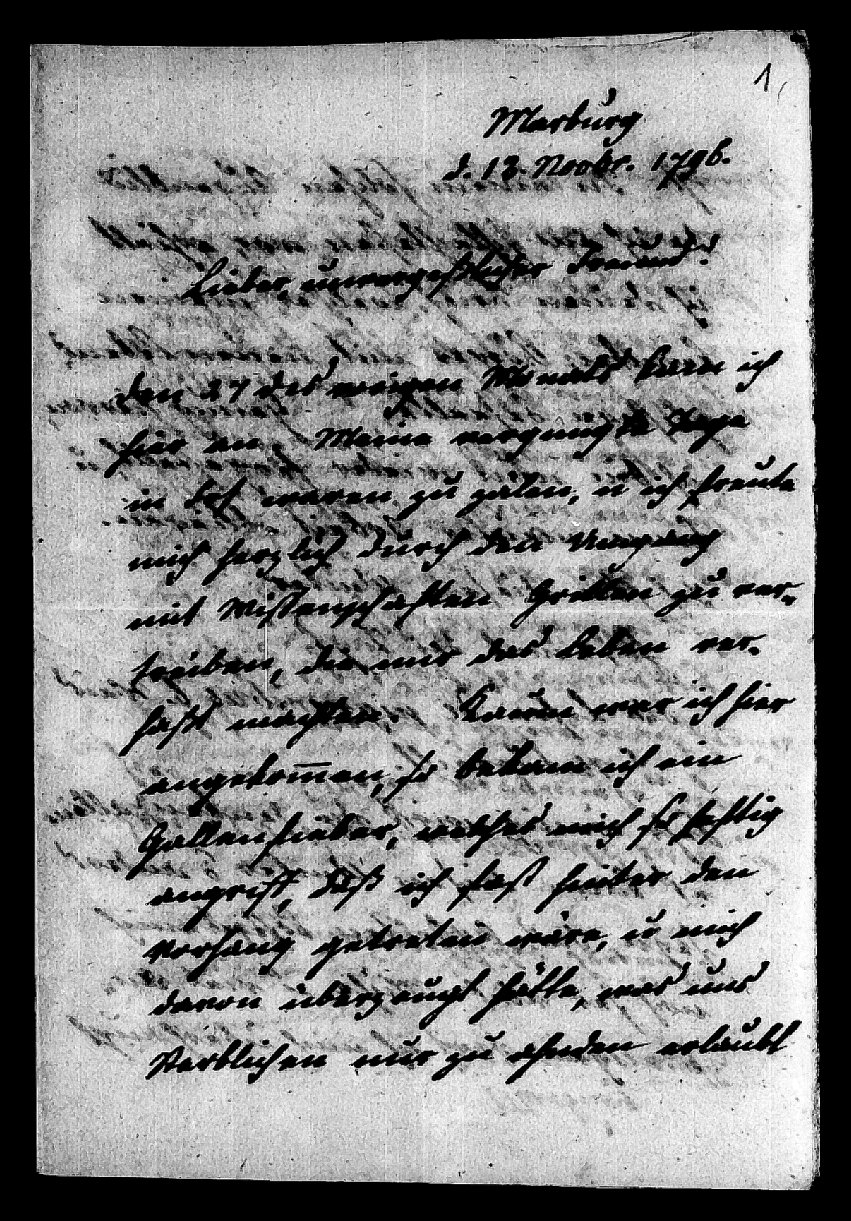 1,
Marburg
d. 13. Novbr. 1796.
Lieber, unvergeßlicher Freund!
Den 27 des vorigen Monats kam ich
hier an. Meine vergnügte Tage
in waren zu zälen, u ich freute
mich herzlich durch den Umgang
mit Wißenschaften Grillen zu ver-
treiben, die mir das Leben ver-
haßt machten. Kaum war ich hier
angekom̄en, so bekam ich ein
Gallenfieber, welches mich so heftig
angriff, daß ich fast hinter den
Vorhang getreten wäre, u mich
davon überzeugt hätte, was uns
Sterblichen nur zu ahnden erlaubt